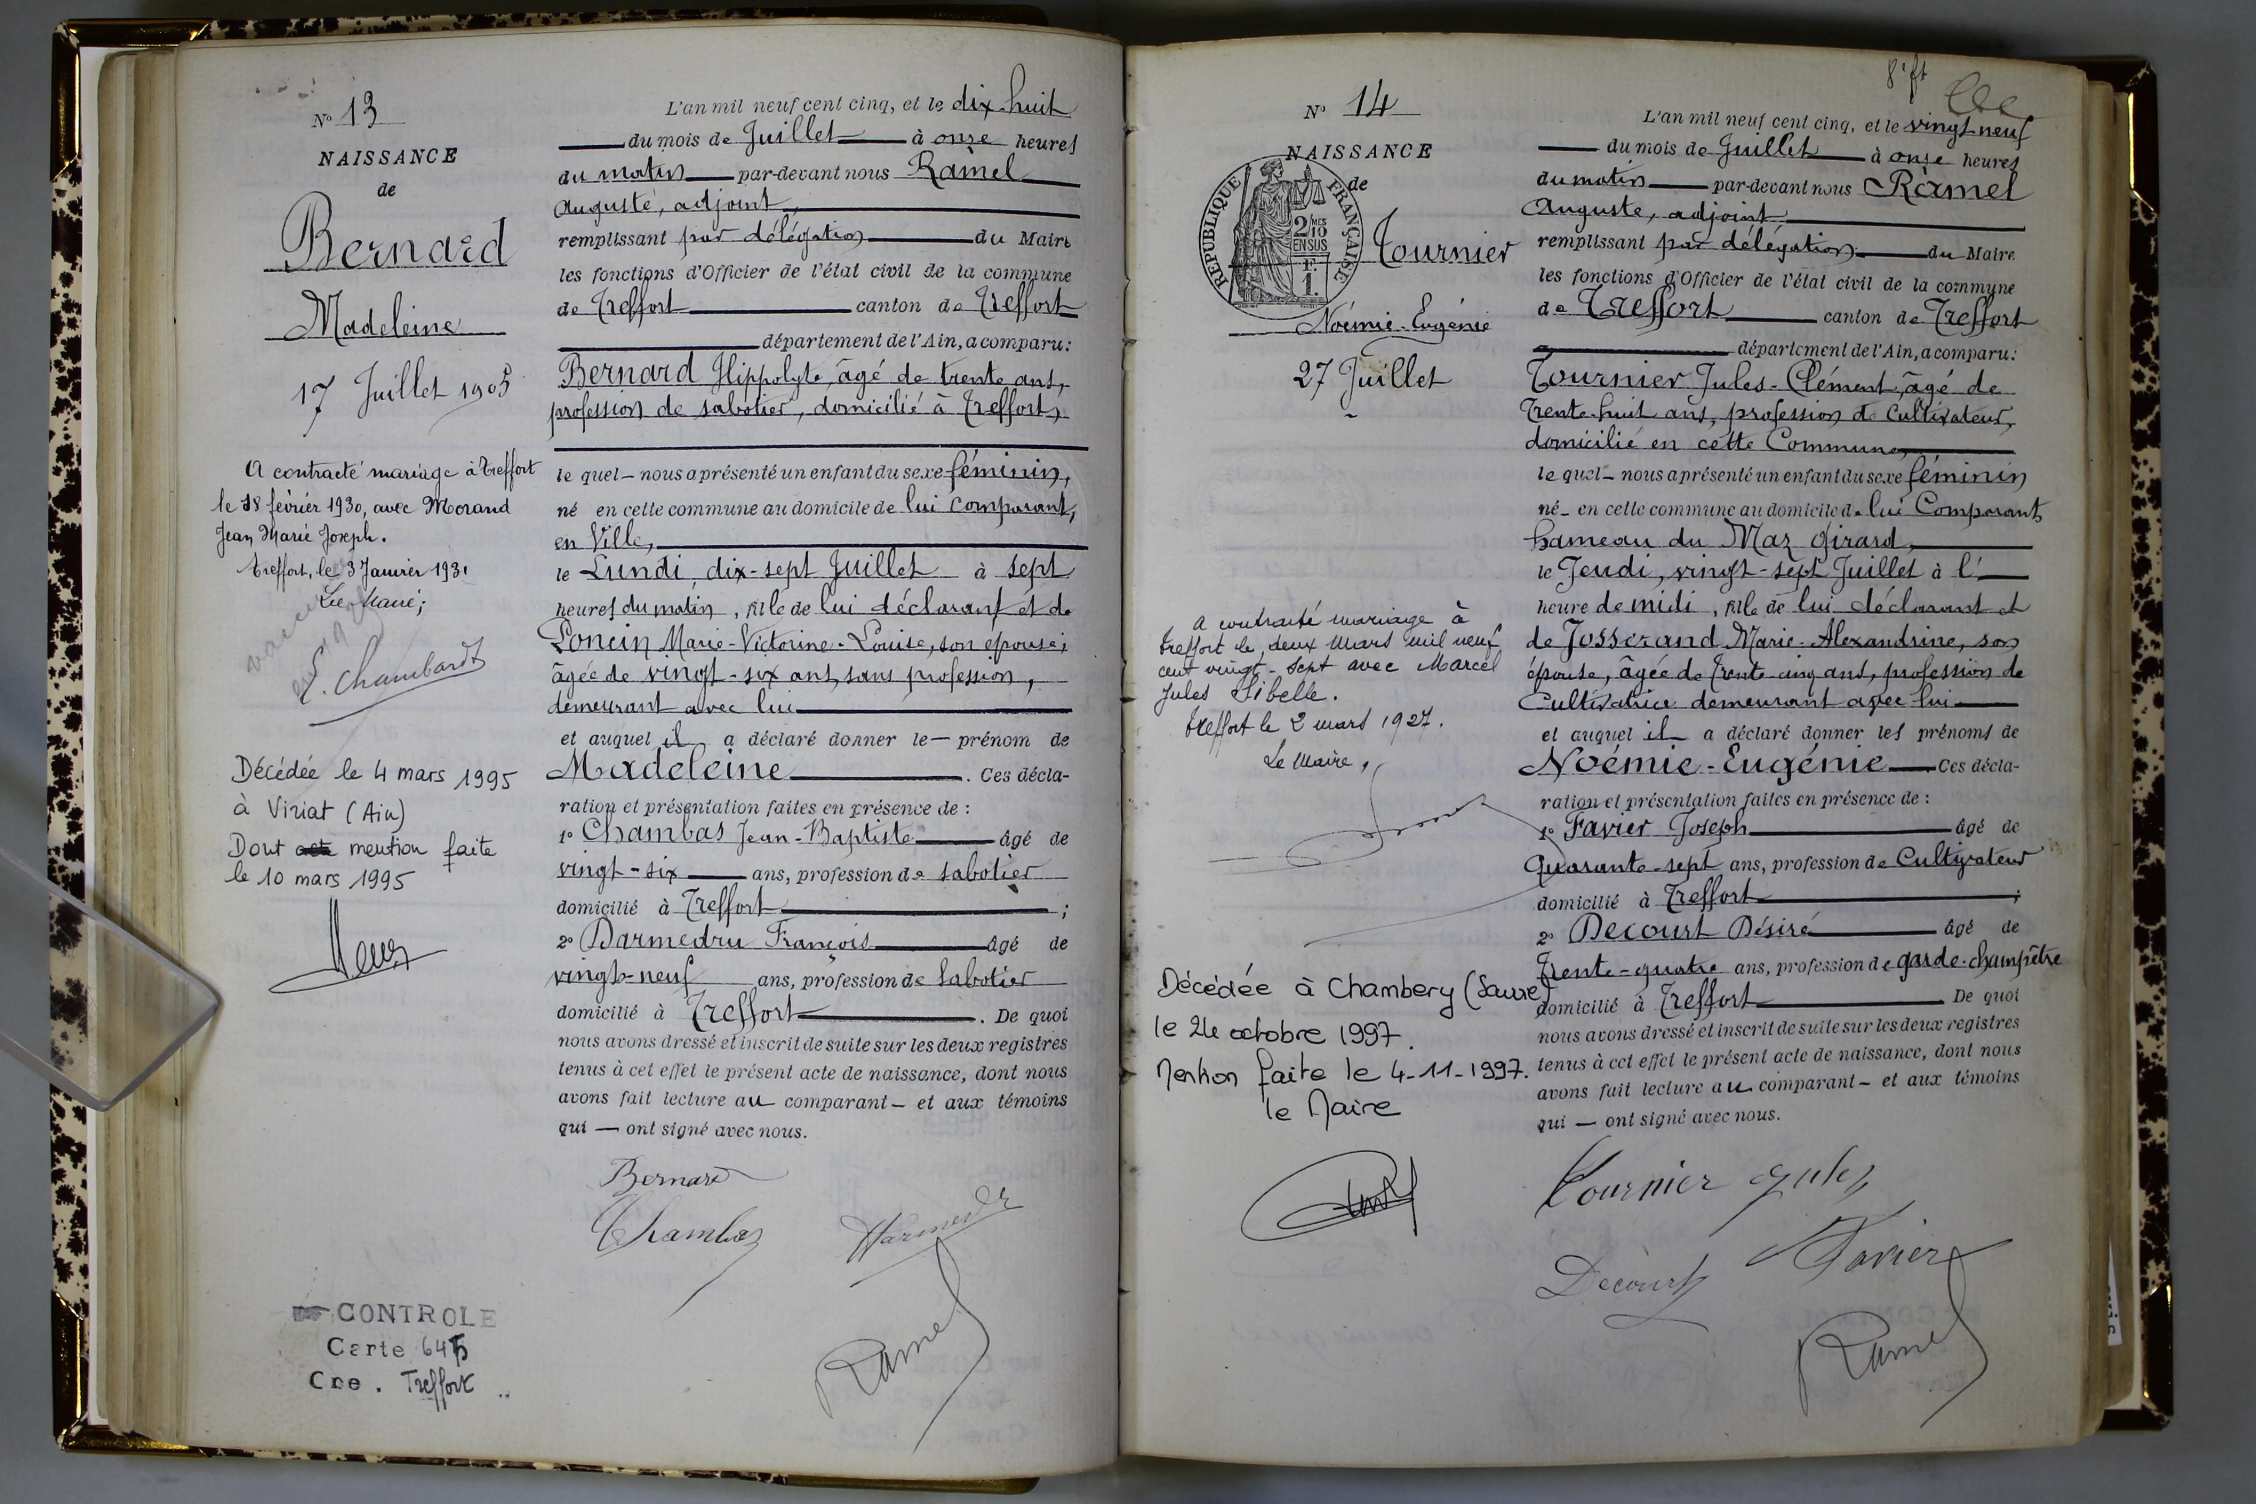 N° 13
NAISSANCE
de
Bernard
Madeleine
17 Juillet 1905
A contracté mariage à Treffort
le 18 février 1930, avec Morand
Jean Marie Joseph.
Treffort, le 3 Janvier 1931
Le Maire;
Chambard
Décédée le 4 mars 1995
à Viriat (Ain)
Dont acte mention faite
le 10 mars 1995
CONTROLE
Carte 645
Cne. Treffort
L'an mil neuf cent cinq, et le dix huit
du mois de Juillet à onze heures
du matin par-devant nous Ramel
Auguste, adjoint,
remplissant par délégation du Maire
les fonctions d'Officier de l'état civil de la commune
de Treffort canton de Treffort
département de l'Ain, a comparu:
Bernard Hippolyte, âgé de trente ans,
profession de sabotier, domicilié à Treffort,
le quel – nous a présenté un enfant du sexe féminin,
né en cette commune au domicile de lui Comparant,
en Ville,
le Lundi, dix-sept Juillet à sept
heures du matin, fille de lui déclarant et de
Poncin Marie-Victorine-Louise, son épouse,
âgée de vingt-six ans, sans profession,
demeurant avec lui
et auquel il a déclaré donner le – prénom de
Madeleine. Ces décla-
ration et présentation faites en présence de :
1° Chambas Jean-Baptiste âgé de
vingt-six ans, profession de sabotier
domicilié à Treffort ;
2° Darmedru François âgé de
vingt-neuf ans, profession de Sabotier
domicilié à Treffort. De quoi
nous avons dressé et inscrit de suite sur les deux registres
tenus à cet effet le présent acte de naissance, dont nous
avons fait lecture au comparant – et aux témoins
qui — ont signé avec nous.
Bernard
Chambas
Ramel
N° 14
NAISSANCE
de
REPUBLIQUE FRANÇAISE
2/10 MES
EN SUS
F.
1.
Tournier
Noémie-Eugénie
27 Juillet
A contracté mariage à
Treffort le deux Mars mil neuf
cent vingt-sept avec Marcel
Jules Sibelle.
Treffort le 2 mars 1927.
Le Maire,
Décédée à Chambery (Savoie)
le 24 octobre 1997.
Mention faite le 4-11-1997.
le Maire
L'an mil neuf cent cinq, et le vingt neuf
du mois de Juillet à onze heures
du matin par-devant nous Ramel
Auguste, adjoint
remplissant par délégation du Maire
les fonctions d'Officier de l'état civil de la commune
de Treffort canton de Treffort
département de l'Ain, a comparu:
Tournier Jules-Clément, âgé de
Trente-huit ans, profession de Cultivateur,
domicilié en cette Commune,
le quel – nous a présenté un enfant du sexe féminin
né – en cette commune au domicile de lui Comparant,
hameau du Maz Girard,
le Jeudi, vingt-sept Juillet à l'
heure de midi, fille de lui déclarant et
de Josserand Marie-Alexandrine, son
épouse, âgée de Trente cinq ans, profession de
Cultivatrice demeurant avec lui
et auquel il a déclaré donner les prénoms de
Noémie-Eugénie. Ces décla-
ration et présentation faites en présence de :
1° Favier Joseph âgé de
Quarante-sept ans, profession de Cultivateur
domicilié à Treffort ;
2° Decourt Désiré âgé de
Trente-quatre ans, profession de garde-champêtre
domicilié à Treffort De quoi
nous avons dressé et inscrit de suite sur les deux registres
tenus à cet effet le présent acte de naissance, dont nous
avons fait lecture au comparant – et aux témoins
qui — ont signé avec nous.
Tournier Jules
Favier
Decourt
Ramel